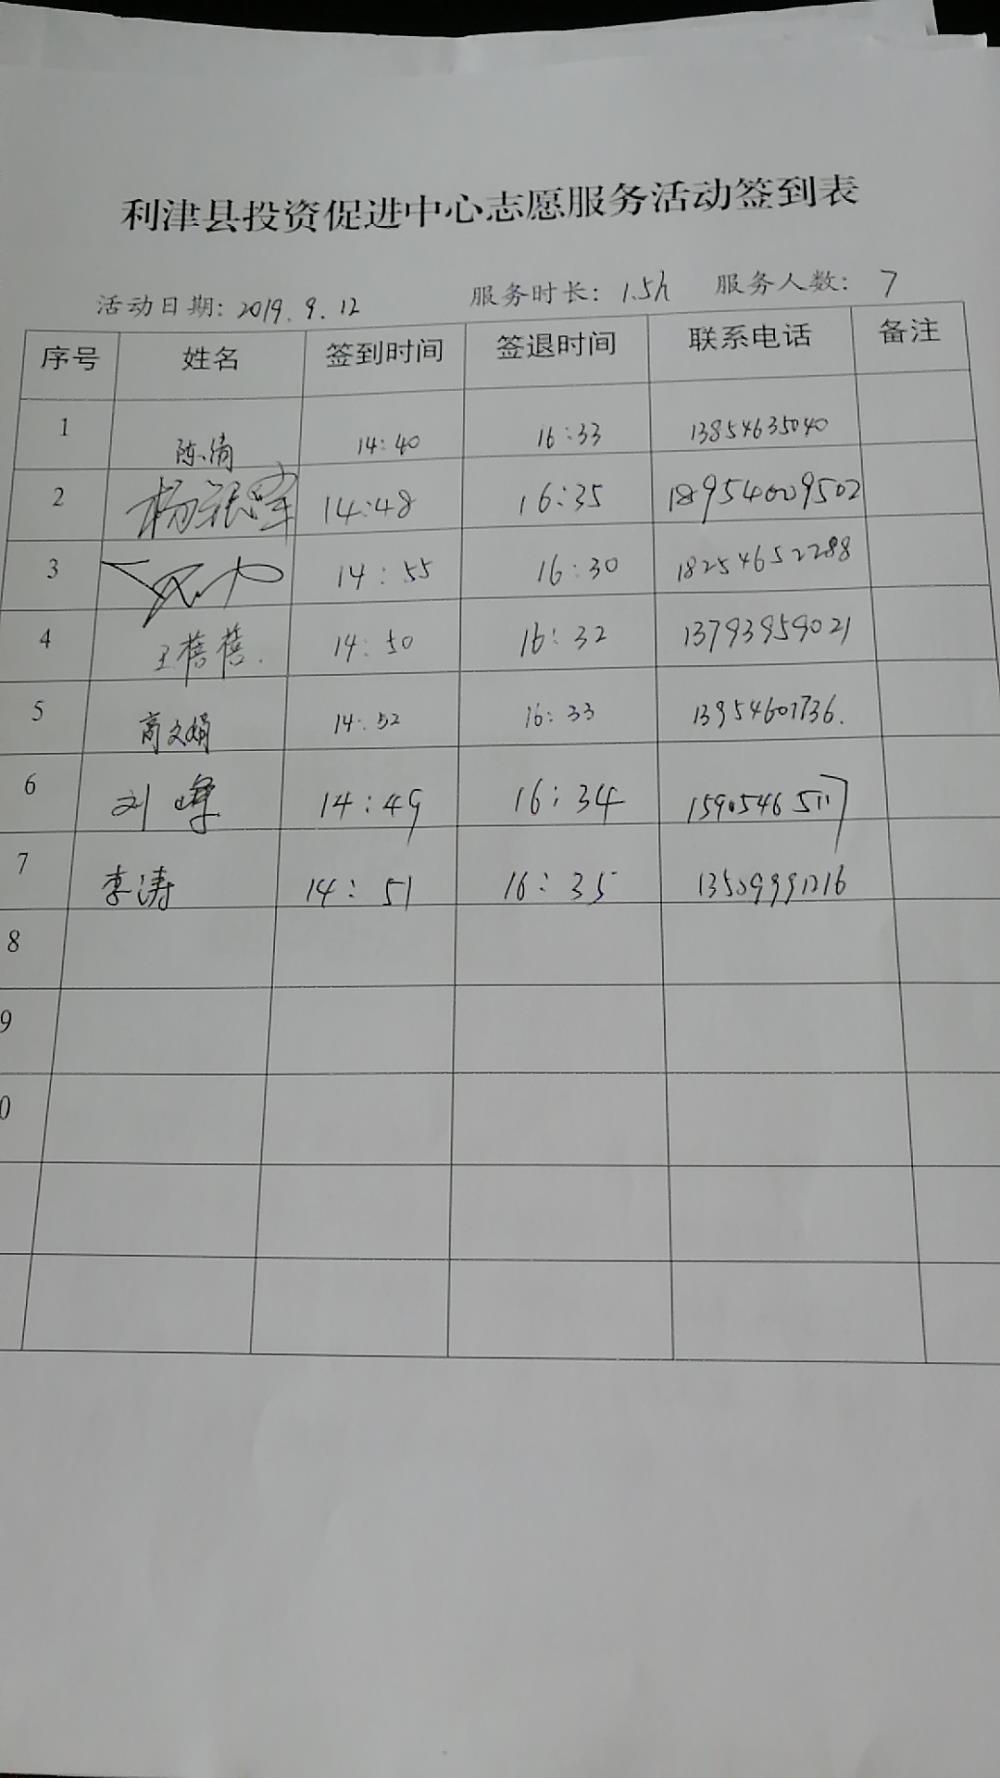 利津县投资促进中心志愿服务活动签到表
活动日期: 2019.9.12 服务时长: 1.5h 服务人数: 7
序号 姓名 签到时间 签退时间 联系电话 备注
1 陈倩 14:40 16:33 13854635040
2 14:48 16:35 18954009502
3 14:55 16:30 18254652288
4 王蓓蓓. 14:50 16:32 13793959021
5 商文娟 14:52 16:33 13954601736.
6 刘峰 14:49 16:34 15905465117
7 李涛 14:51 16:35 13509991216
8
9
0